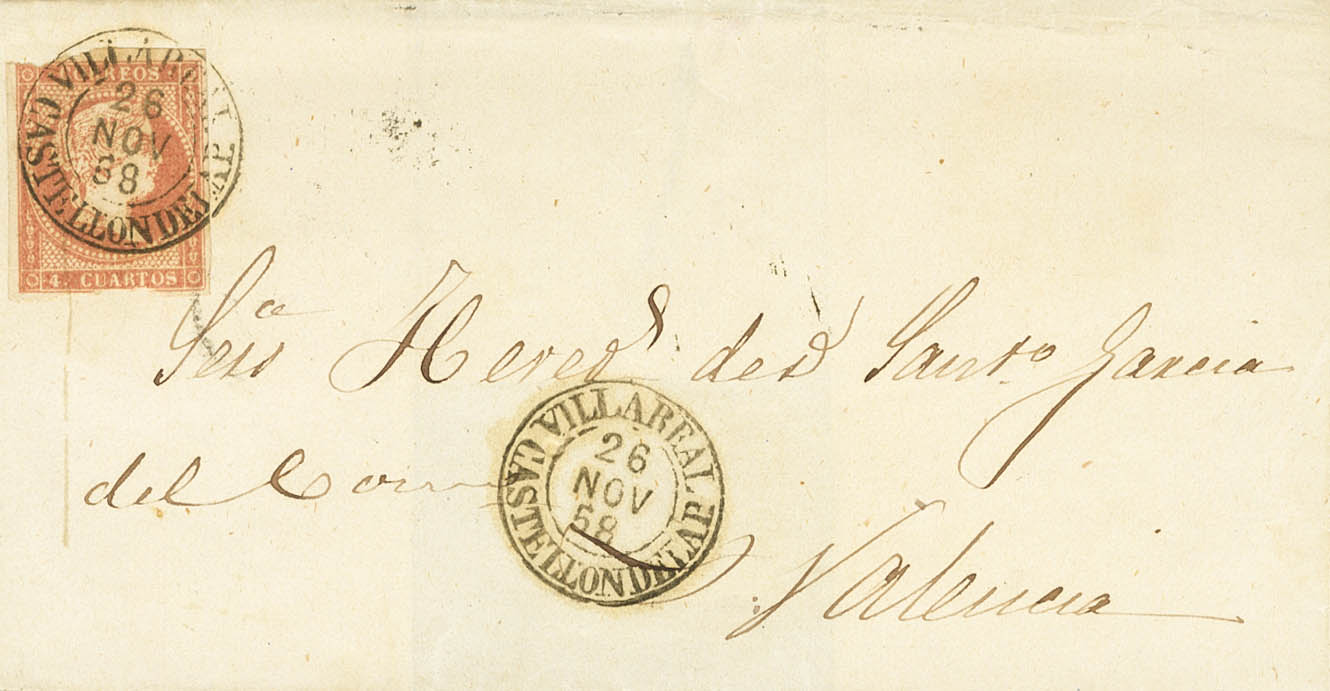 CORREOS
4. CUARTOS
VILLAREAL
26
NOV
58
CASTELLON DE LA P.
Sres Hered.s de d. Sant.o Garcia
del
VILLAREAL
26
NOV
58
CASTELLON DE LA P.
Valencia